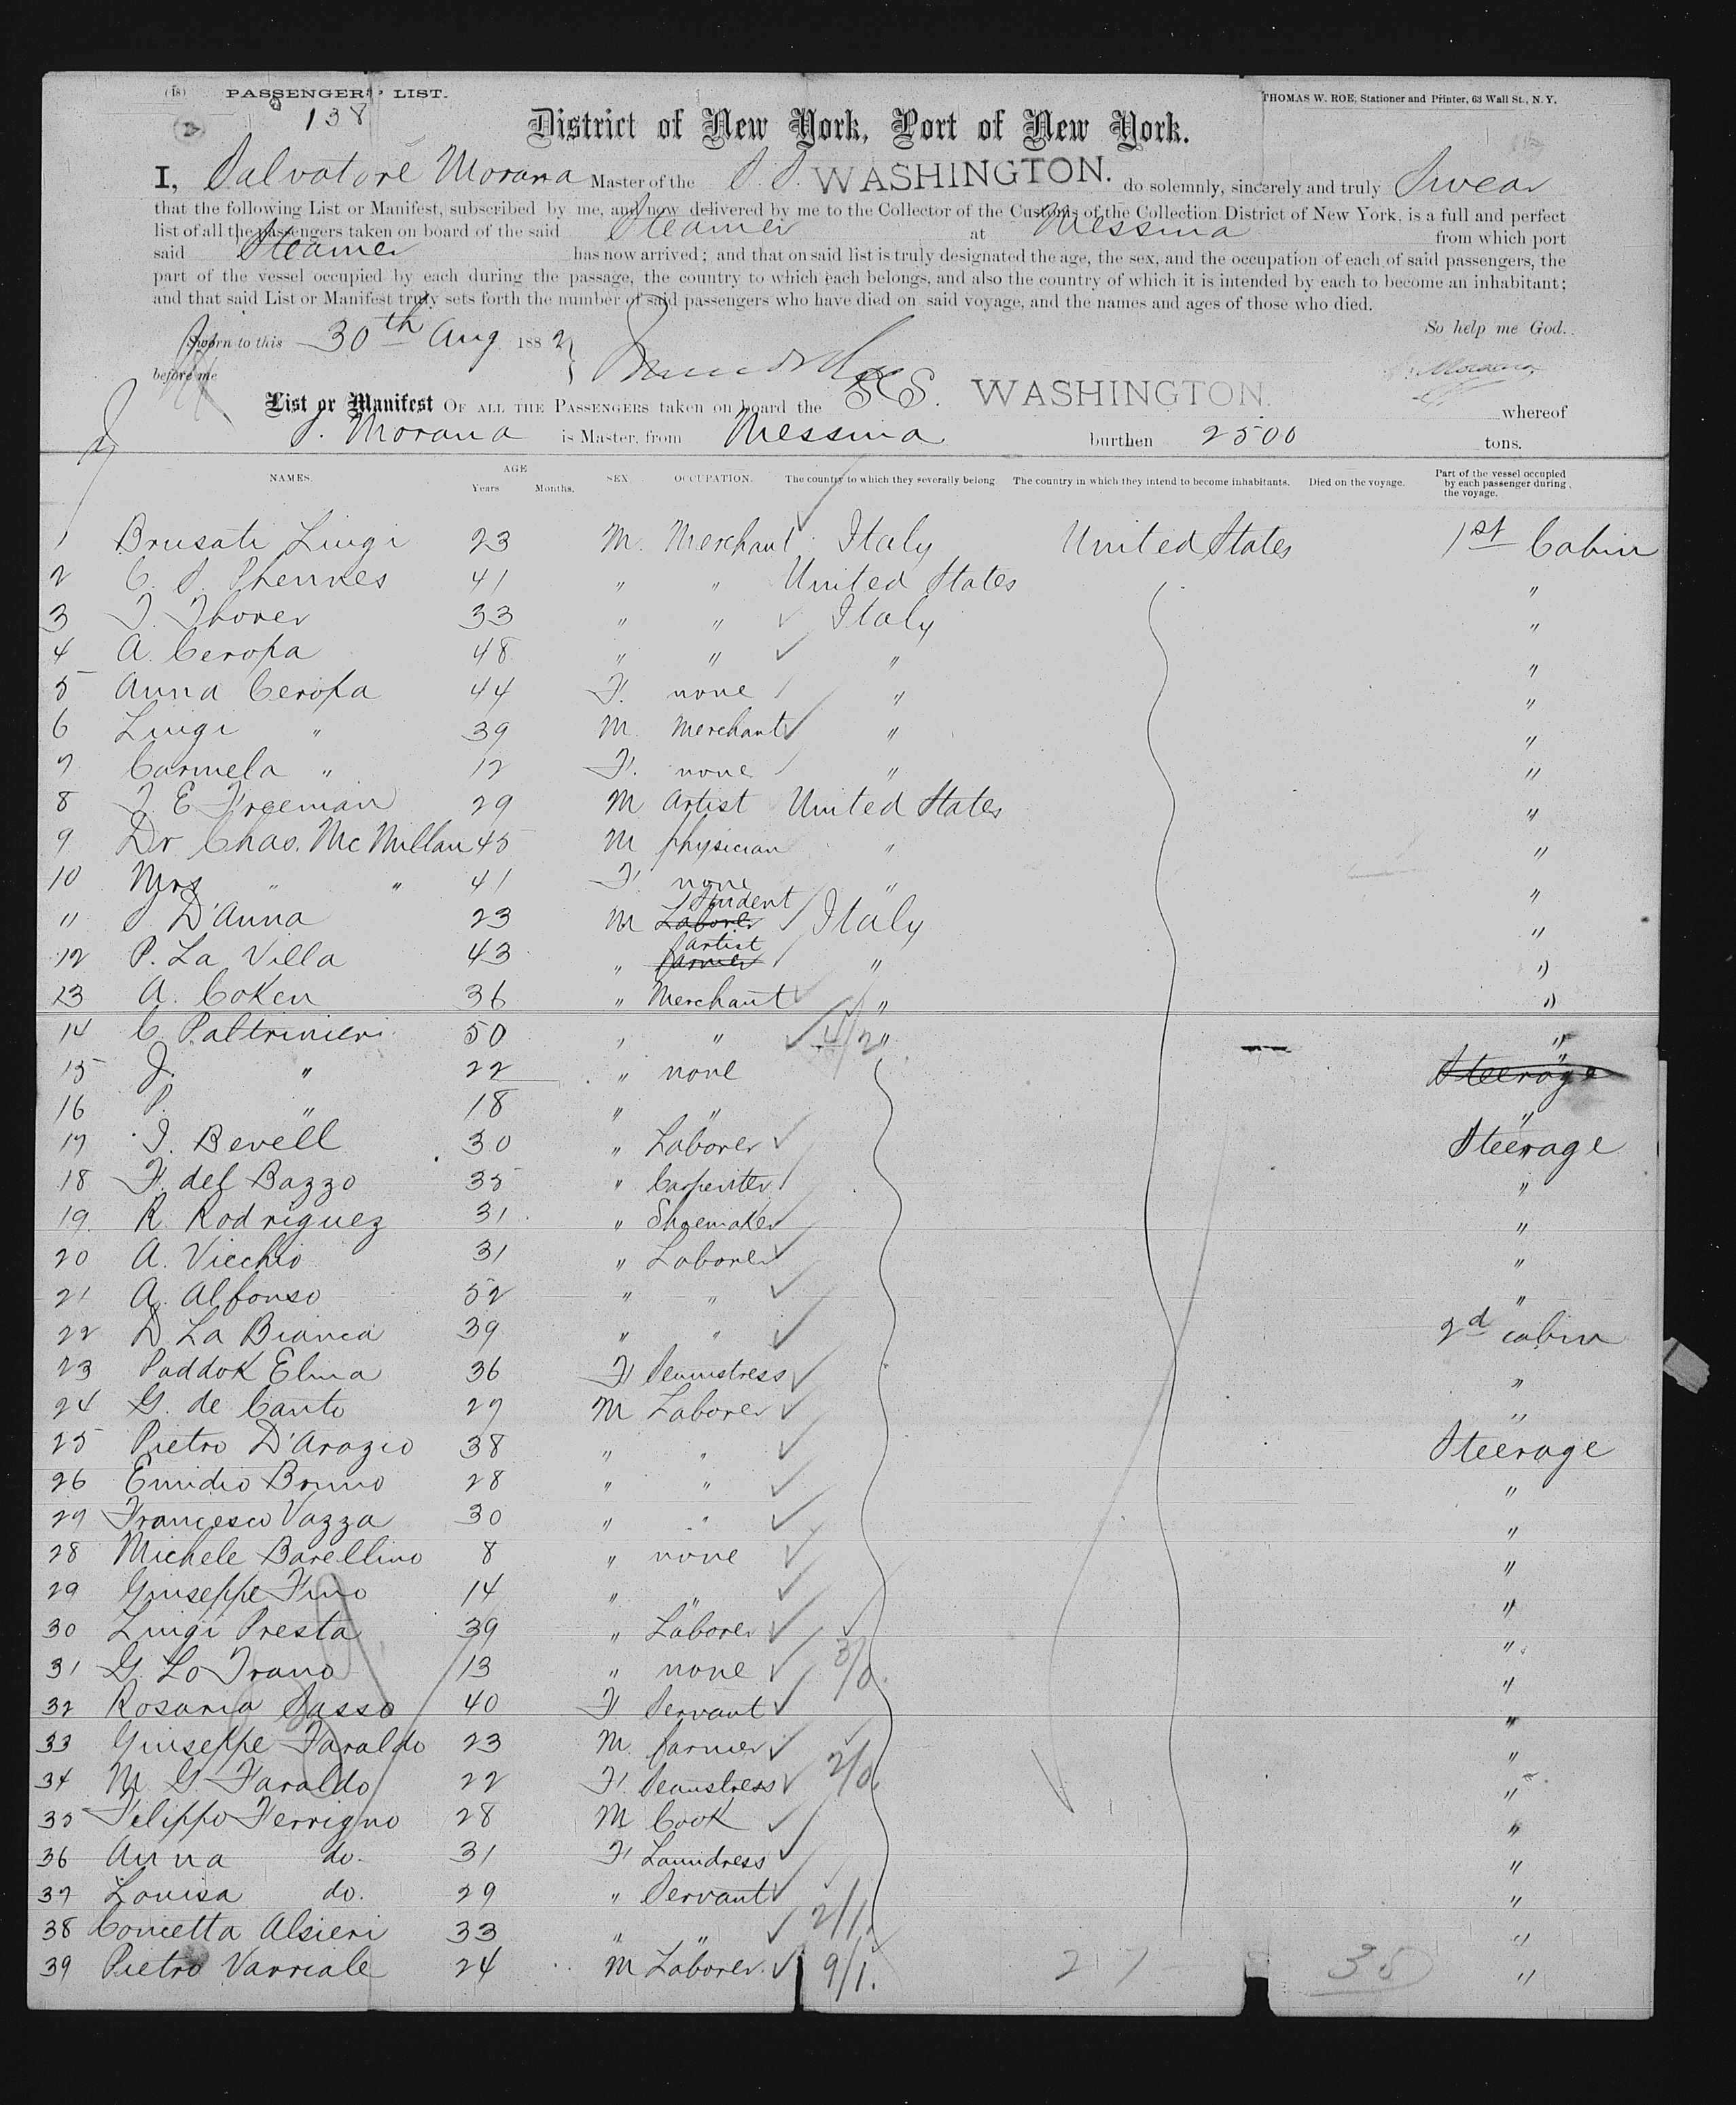 (18) PASSENGERS' LIST. THOMAS W. ROE, Stationer and Printer, 63 Wall St., N.Y.
138
District of New York, Port of New York.
I, Salvatore Morana Master of the S.S. WASHINGTON. do solemnly, sincerely and truly Swear
that the following List or Manifest, subscribed by me, and now delivered by me to the Collector of the Customs of the Collection District of New York, is a full and perfect
list of all the passengers taken on board of the said Steamer at Messina from which port
said Steamer has now arrived; and that on said list is truly designated the age, the sex, and the occupation of each of said passengers, the
part of the vessel occupied by each during the passage, the country to which each belongs, and also the country of which it is intended by each to become an inhabitant;
and that said List or Manifest truly sets forth the number of said passengers who have died on said voyage, and the names and ages of those who died.
So help me God.
Sworn to this 30th Aug 1882
before me S. Morana
List or Manifest OF ALL THE PASSENGERS taken on board the SS. WASHINGTON. whereof
S. Morana is Master, from Messina burthen 2500 tons.
NAMES. AGE Years Months. SEX OCCUPATION. The country to which they severally belong The country in which they intend to become inhabitants. Died on the voyage. Part of the vessel occupied by each passenger during the voyage.
1 Brusati Luigi 23 M. Merchant Italy United States 1st Cabin
2 C. S. Phennes 41 " " United States "
3 T. Thover 33 " " Italy "
4 A. Ceropa 48 " " " "
5 Anna Ceropa 44 F. none " "
6 Luigi " 39 M Merchant " "
7 Carmela " 12 F. none " "
8 J. E Freeman 29 M Artist United States "
9 Dr Chas. McMillan 45 M physician " "
10 Mrs " " 41 F. none " "
11 S. D'Anna 23 M Laborer Student Italy "
12 P. La Villa 43 " farmer artist " "
13 A. Coken 36 " Merchant " "
14 C. Paltrinieri 50 " " 4/2 " "
15 J. " 22 " none Steerage "
16 P. " 18 " " "
17 I. Bevell 30 " Laborer Steerage
18 F. del Bazzo 35 " Carpenter "
19. R. Rodriguez 31 " Shoemaker "
20 A. Vicchio 31 " Laborer "
21 A. Alfonso 52 " " "
22 D. La Bianca 39 " " 2d cabin
23 Paddok Elma 36 F Seamstress "
24 G. de Canto 27 M Laborer "
25 Pietro D'Arazio 38 " " Steerage
26 Emidio Bruno 28 " " "
27 Francesco Vazza 30 " " "
28 Michele Barellino 8 " none "
29 Giuseppe Fino 14 " " "
30 Luigi Presta 39 " Laborer "
31 G. Lo Trano 13 " none 3/0. "
32 Rosaria Sasso 40 F Servant "
33 Giuseppe Faraldo 23 M. farmer "
34 M. G. Faraldo 22 F. Seamstress 2/0. "
35 Filippo Ferrigno 28 M Cook "
36 Anna do. 31 F Laundress "
37 Louisa do. 29 " Servant "
38 Concetta Alsieri 33 " " 2/1. "
39 Pietro Varriale 24 M Laborer 9/1. "
27 38